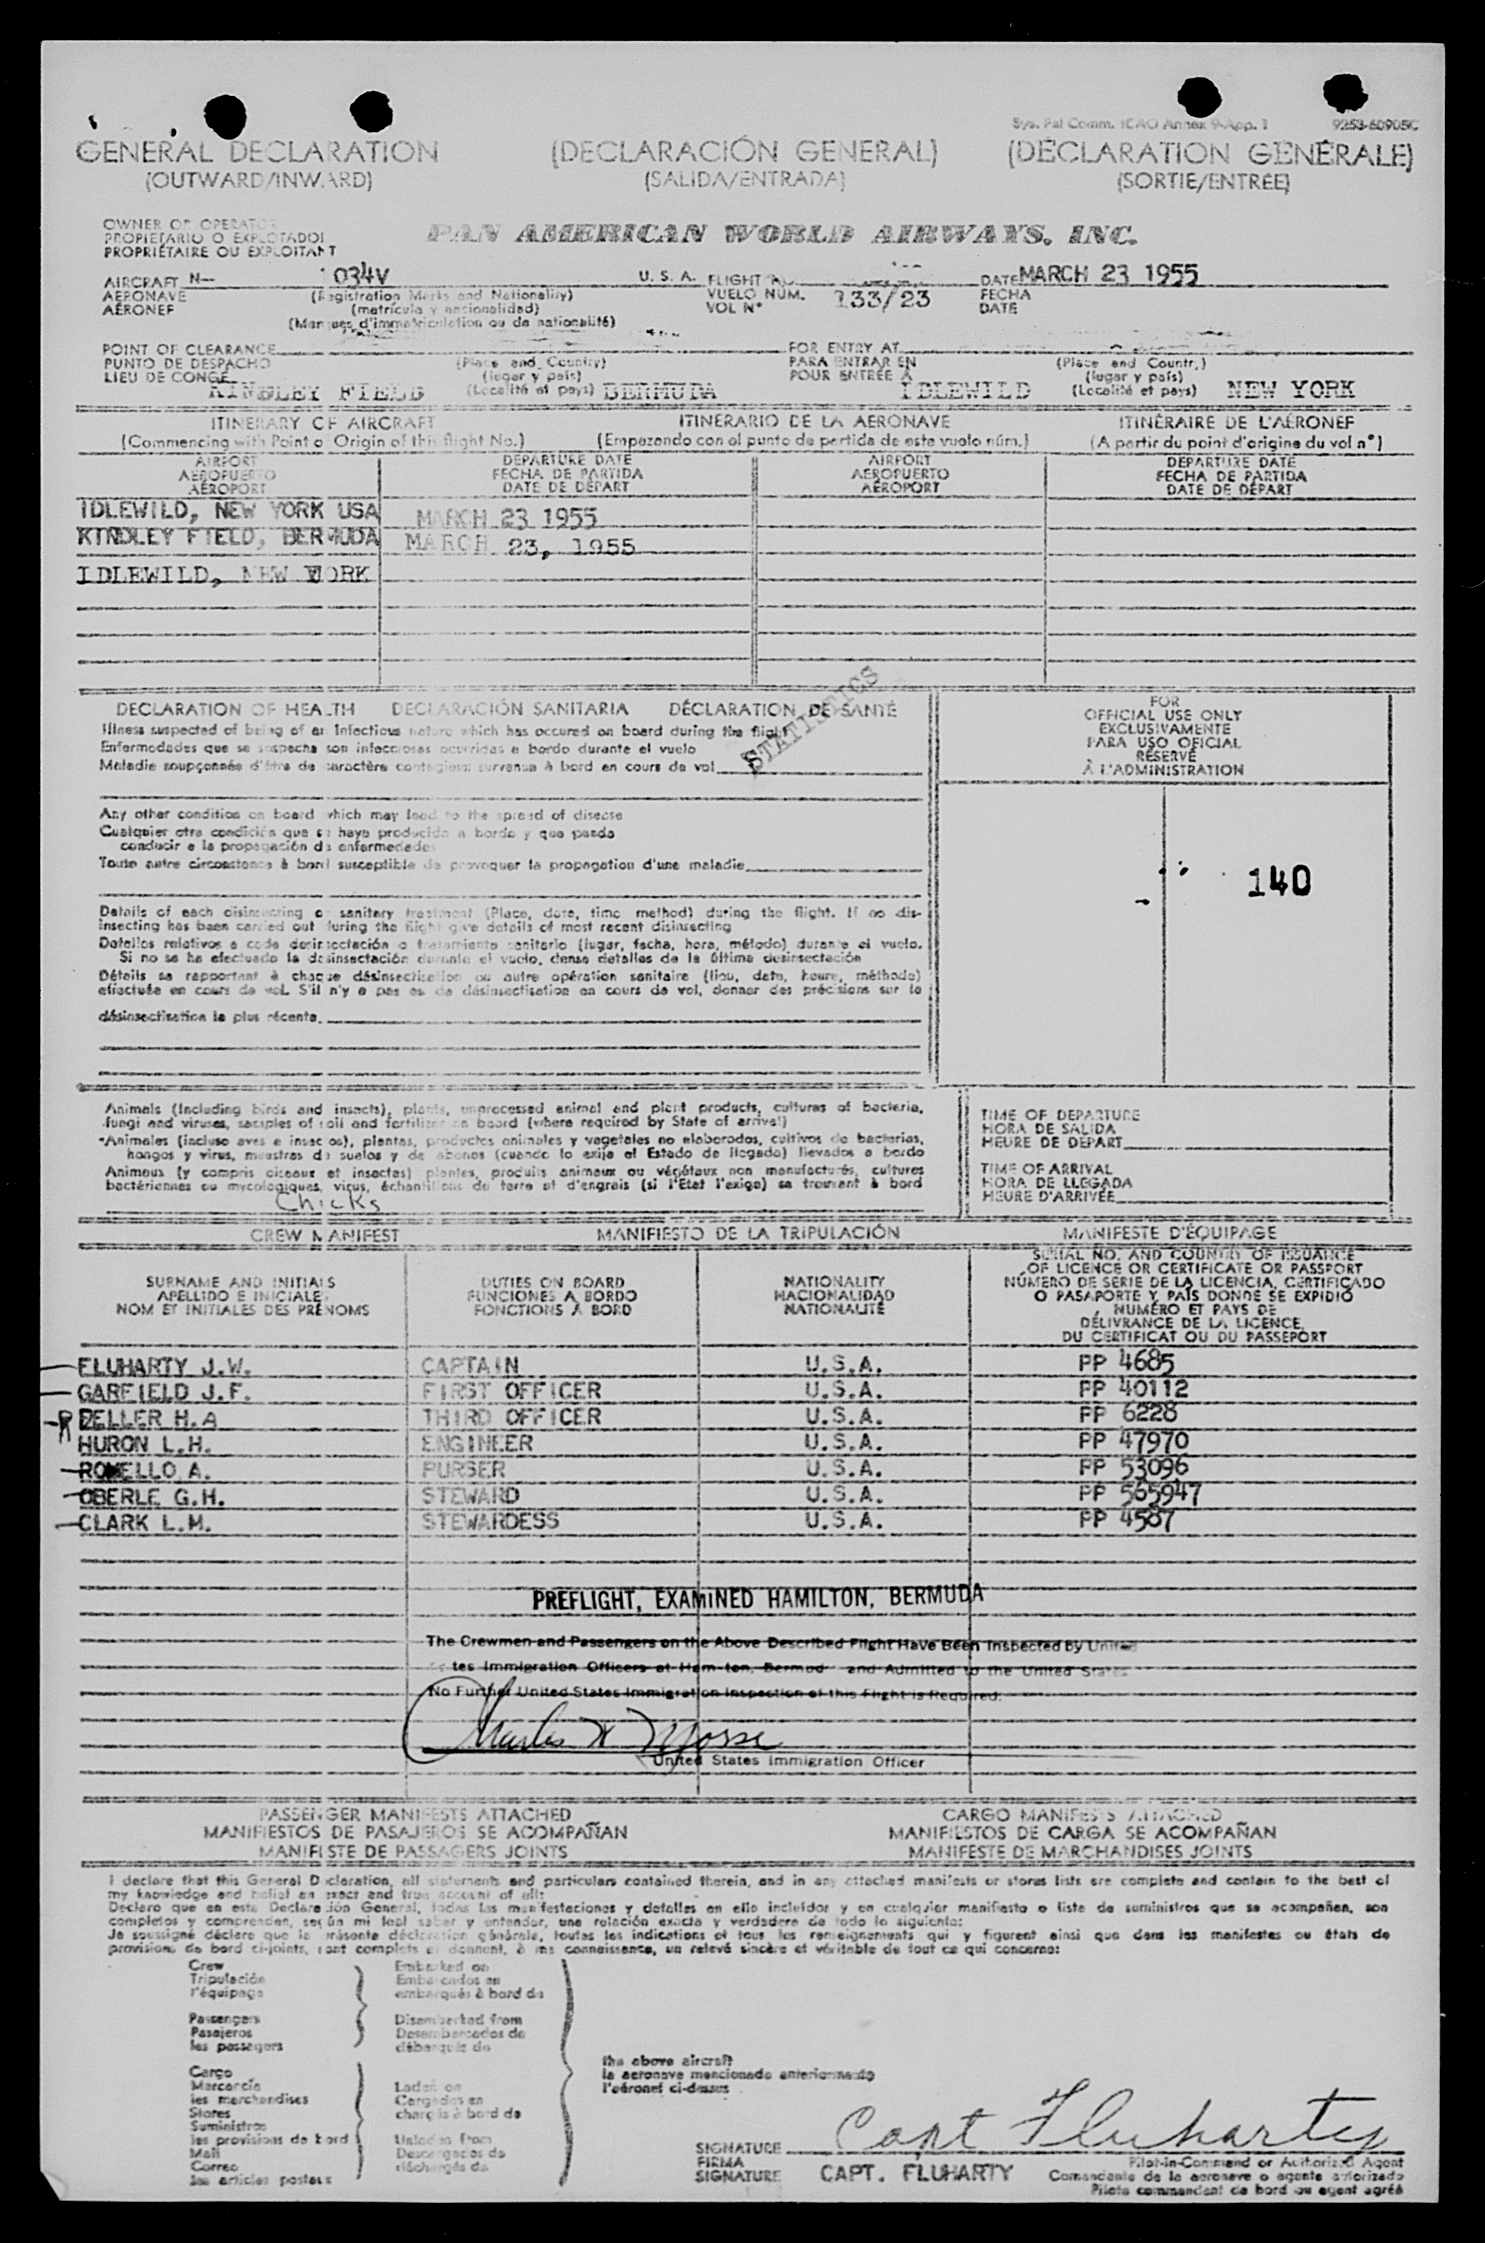 Sys. Pal Comm. ICAO Annex 9-App. 1 9253-60905C
GENERAL DECLARATION (DECLARACIÓN GENERAL) (DÉCLARATION GÉNÉRALE)
(OUTWARD/INWARD) (SALIDA/ENTRADA) (SORTIE/ENTRÉE)
OWNER OR OPERATOR
PROPIETARIO O EXPLOTADOR
PROPRIÉTAIRE OU EXPLOITANT
PAN AMERICAN WORLD AIRWAYS, INC.
AIRCRAFT N-- 1034V U. S. A. FLIGHT No. DATE MARCH 23 1955
AERONAVE (Registration Marks and Nationality) VUELO NÚM. 133/23 FECHA
AÉRONEF (matrícula y nacionalidad) VOL N° DATE
(Marques d'immatriculation ou de nationalité)
POINT OF CLEARANCE FOR ENTRY AT
PUNTO DE DESPACHO (Place and Country) PARA ENTRAR EN (Place and Country)
LIEU DE CONGÉ (lugar y país) POUR ENTRÉE À (lugar y país)
KINDLEY FIELD (Localité et pays) BERMUDA IDLEWILD (Localité et pays) NEW YORK
ITINERARY OF AIRCRAFT ITINERARIO DE LA AERONAVE ITINÉRAIRE DE L'AÉRONEF
(Commencing with Point of Origin of this flight No.) (Empezando con el punto de partida de este vuelo núm.) (A partir du point d'origine du vol n°)
AIRPORT DEPARTURE DATE AIRPORT DEPARTURE DATE
AEROPUERTO FECHA DE PARTIDA AEROPUERTO FECHA DE PARTIDA
AÉROPORT DATE DE DÉPART AÉROPORT DATE DE DÉPART
IDLEWILD, NEW YORK USA MARCH 23 1955
KINDLEY FIELD, BERMUDA MARCH 23, 1955
IDLEWILD, NEW YORK
STATISTICS
DECLARATION OF HEALTH DECLARACIÓN SANITARIA DÉCLARATION DE SANTÉ
Illness suspected of being of an Infectious nature which has occured on board during the flight
Enfermedades que se sospecha son infecciosas ocurridas a bordo durante el vuelo
Maladie soupçonnée d'être de caractère contagieux survenue à bord en cours de vol
Any other condition on board which may lead to the spread of disease
Cualquier otra condición que se haya producido a bordo y que pueda
conducir a la propagación de enfermedades
Toute autre circonstance à bord susceptible de provoquer la propagation d'une maladie
Details of each disinsecting or sanitary treatment (Place, date, time method) during the flight. If no dis-
insecting has been carried out during the flight give details of most recent disinsecting
Detalles relativos a cada desinsectación o tratamiento sanitario (lugar, fecha, hora, método) durante el vuelo.
Si no se ha efectuado la desinsectación durante el vuelo, dense detalles de la última desinsectación
Détails se rapportant à chaque désinsectisation ou autre opération sanitaire (lieu, date, heure, méthode)
effectuée en cours de vol. S'il n'y a pas eu de désinsectisation en cours de vol, donner des précisions sur la
désinsectisation la plus récente.
FOR
OFFICIAL USE ONLY
EXCLUSIVAMENTE
PARA USO OFICIAL
RÉSERVÉ
À L'ADMINISTRATION
140
Animals (Including birds and insects), plants, unprocessed animal and plant products, cultures of bacteria,
fungi and viruses, samples of soil and fertilizer on board (where required by State of arrival)
Animales (incluso aves e insectos), plantas, productos animales y vegetales no elaborados, cultivos de bacterias,
hongos y virus, muestras de suelos y de abonos (cuando lo exija el Estado de llegada) llevados a bordo
Animaux (y compris oiseaux et insectes) plantes, produits animaux ou végétaux non manufacturés, cultures
bactériennes ou mycologiques, virus, échantillons de terre et d'engrais (si l'Etat l'exige) se trouvant à bord
Chicks
TIME OF DEPARTURE
HORA DE SALIDA
HEURE DE DÉPART
TIME OF ARRIVAL
HORA DE LLEGADA
HEURE D'ARRIVÉE
CREW MANIFEST MANIFIESTO DE LA TRIPULACIÓN MANIFESTE D'ÉQUIPAGE
SURNAME AND INITIALS
APELLIDO E INICIALES
NOM ET INITIALES DES PRÉNOMS
DUTIES ON BOARD
FUNCIONES A BORDO
FONCTIONS À BORD
NATIONALITY
NACIONALIDAD
NATIONALITÉ
SERIAL NO. AND COUNTRY OF ISSUANCE
OF LICENCE OR CERTIFICATE OR PASSPORT
NÚMERO DE SERIE DE LA LICENCIA, CERTIFICADO
O PASAPORTE Y PAÍS DONDE SE EXPIDIÓ
NUMÉRO ET PAYS DE
DÉLIVRANCE DE LA LICENCE,
DU CERTIFICAT OU DU PASSEPORT
FLUHARTY J.W. CAPTAIN U.S.A. PP 4685
GARFIELD J.F. FIRST OFFICER U.S.A. PP 40112
R ZELLER H.A THIRD OFFICER U.S.A. PP 6228
HURON L.H. ENGINEER U.S.A. PP 47970
ROMELLO A. PURSER U.S.A. PP 53096
OBERLE G.H. STEWARD U.S.A. PP 565947
CLARK L.M. STEWARDESS U.S.A. PP 4587
PREFLIGHT, EXAMINED HAMILTON, BERMUDA
The Crewmen and Passengers on the Above Described Flight Have Been Inspected by United
tes Immigration Officers at Hamilton, Bermuda and Admitted to the United States
No Further United States Immigration Inspection of this Flight is Required.
Charles W Morse
United States Immigration Officer
PASSENGER MANIFESTS ATTACHED CARGO MANIFESTS ATTACHED
MANIFIESTOS DE PASAJEROS SE ACOMPAÑAN MANIFIESTOS DE CARGA SE ACOMPAÑAN
MANIFESTE DE PASSAGERS JOINTS MANIFESTE DE MARCHANDISES JOINTS
I declare that this General Declaration, all statements and particulars contained therein, and in any attached manifests or stores lists are complete and contain to the best of
my knowledge and belief an exact and true account of all:
Declaro que en esta Declaración General, todas las manifestaciones y detalles en ella incluídos y en cualquier manifiesto o lista de suministros que se acompañan, son
completos y comprenden, según mi leal saber y entender, una relación exacta y verdadera de todo lo siguiente:
Je soussigné déclare que la présente déclaration générale, toutes les indications et tous les renseignements qui y figurent ainsi que dans les manifestes ou états de
provisions de bord ci-joints, sont complets et donnent, à ma connaissance, un relevé sincère et véritable de tout ce qui concerne:
Crew
Tripulación
l'équipage
Passengers
Pasajeros
les passagers
Cargo
Mercancía
les marchandises
Stores
Suministros
les provisions de bord
Mail
Correo
les articles postaux
Embarked on
Embarcados en
embarqués à bord de
Disembarked from
Desembarcados de
débarqués de
Laden on
Cargados en
chargés à bord de
Unladen from
Descargados de
déchargés de
the above aircraft
la aeronave mencionada anteriormente
l'aéronef ci-dessus
Capt Fluharty
SIGNATURE
FIRMA
SIGNATURE
CAPT. FLUHARTY
Pilot-in-Command or Authorized Agent
Comandante de la aeronave o agente autorizado
Pilote commandant de bord ou agent agréé